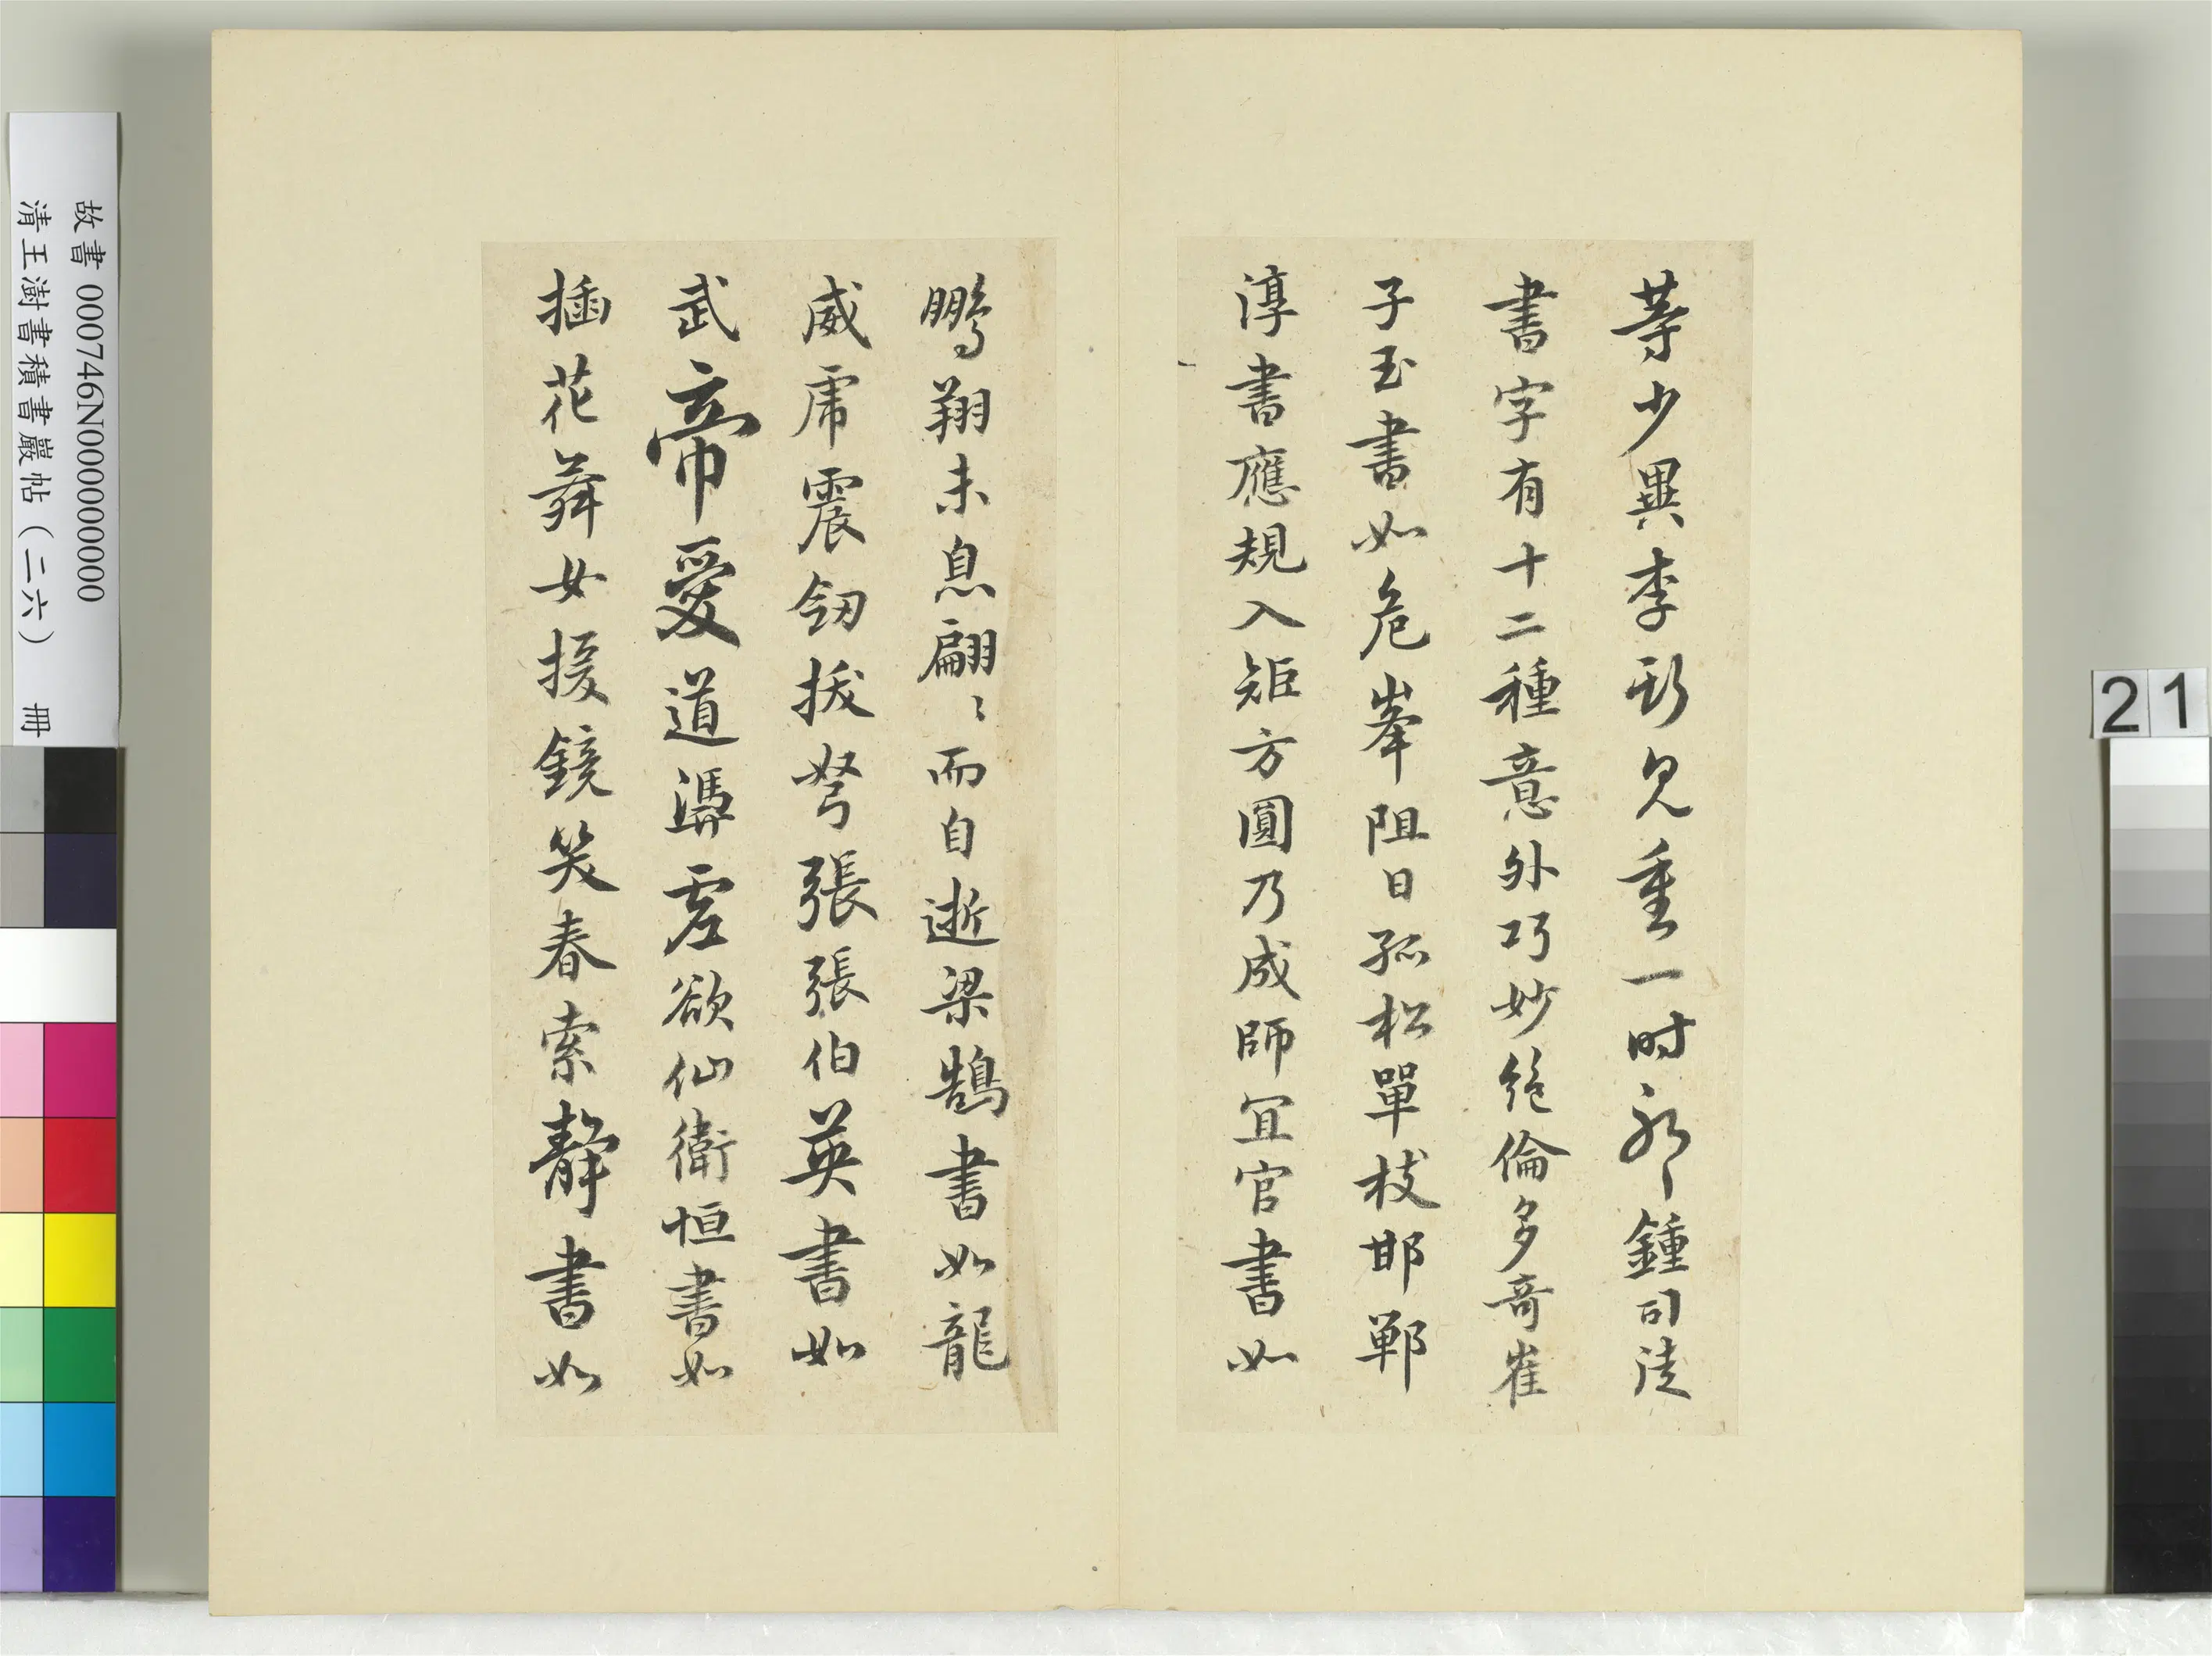 等少異李斯見重一時耶鍾司徒
書字有十二種意外巧妙絕倫多奇崔
子玉書如危峯阻日孤松單枝邯鄲
淳書應規入矩方圓乃成師宜官書如
鵬翔未息翩〻而自逝梁鵠書如龍
威虎震劒拔弩張張伯英書如
武帝愛道憑虛欲仙衛恒書如
插花舞女援鏡笑春索靜書如
故書 000746N000000000
清王澍書積書巖帖(二六) 冊
21